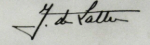 J. de Latter